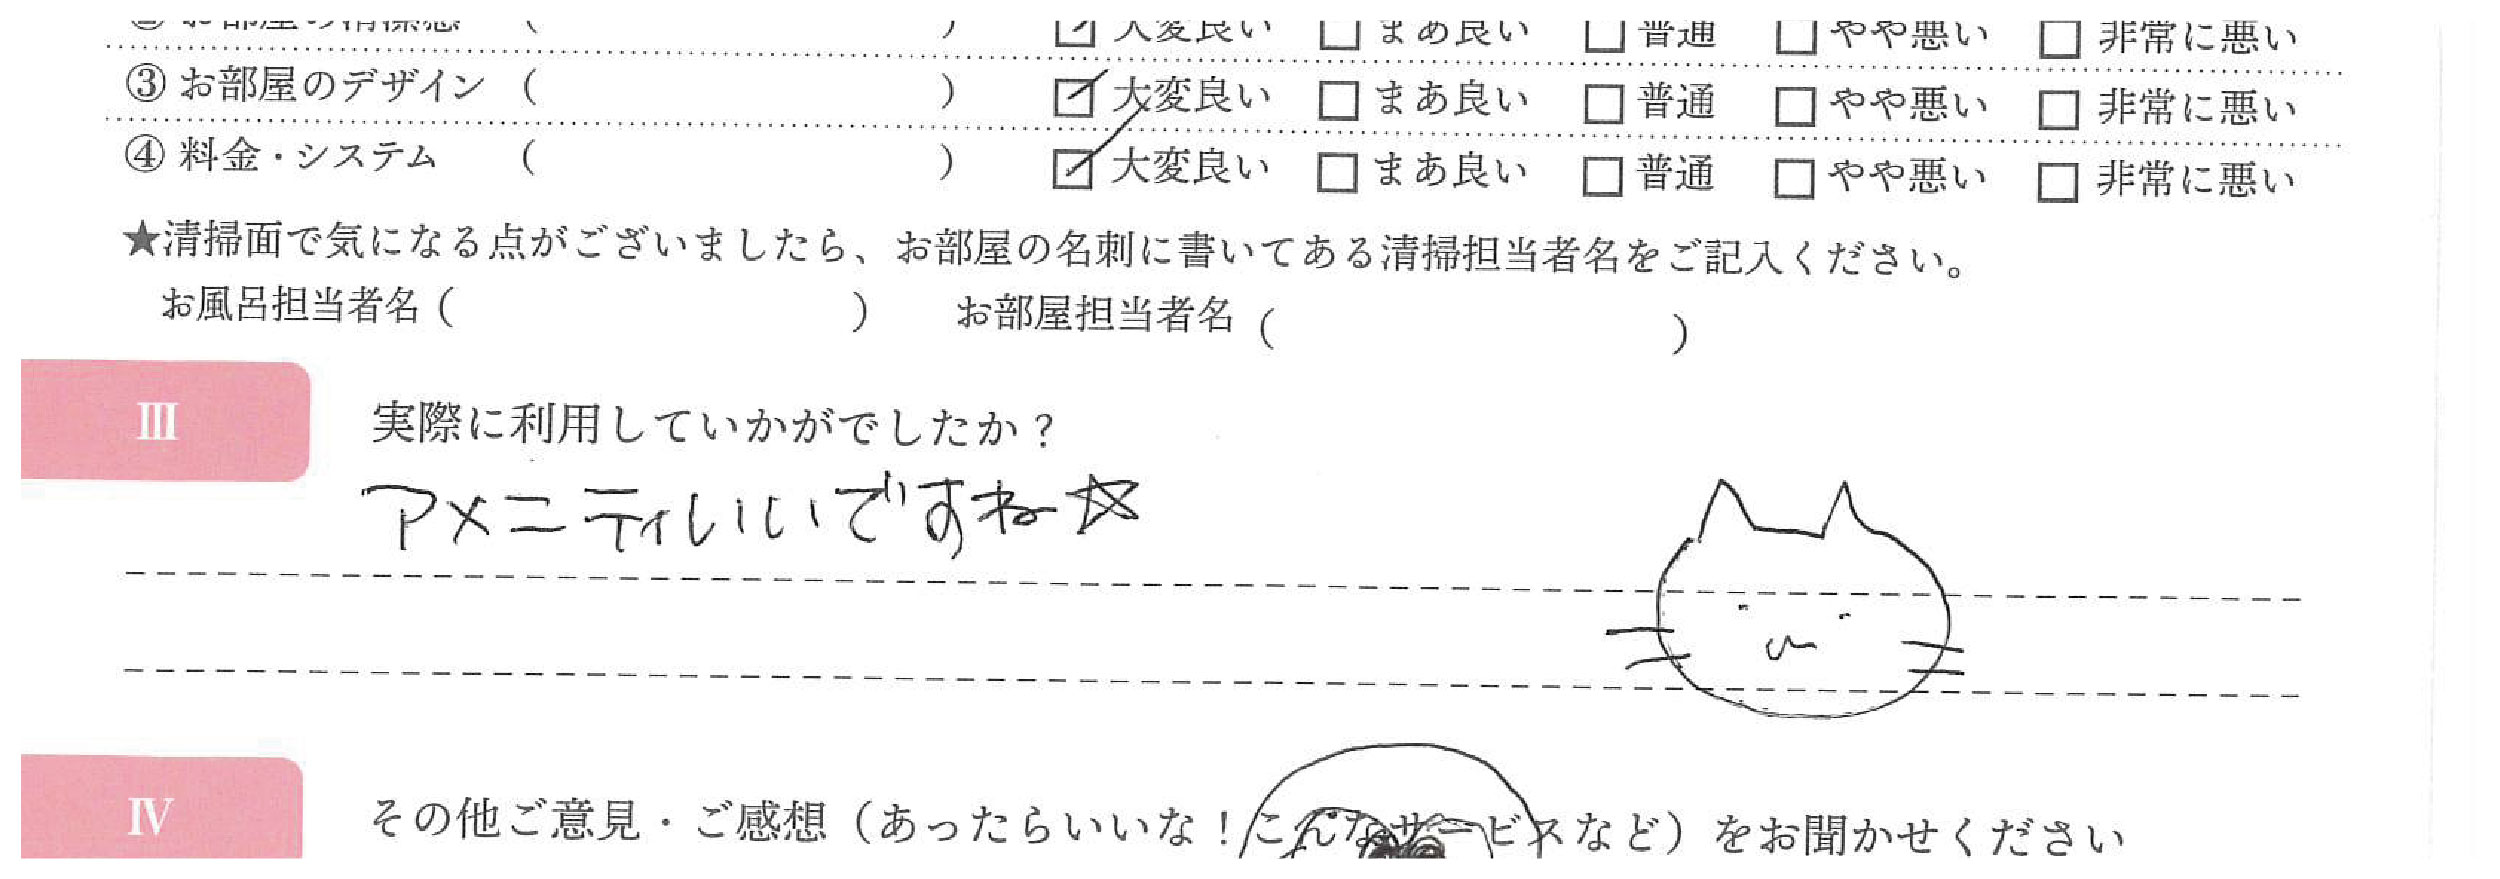 ② お部屋の清潔感 ( ) ☑ 大変良い □ まあ良い □ 普通 □ やや悪い □ 非常に悪い
③ お部屋のデザイン ( ) ☑ 大変良い □ まあ良い □ 普通 □ やや悪い □ 非常に悪い
④ 料金・システム ( ) ☑ 大変良い □ まあ良い □ 普通 □ やや悪い □ 非常に悪い
★清掃面で気になる点がございましたら、お部屋の名刺に書いてある清掃担当者名をご記入ください。
お風呂担当者名 ( ) お部屋担当者名 ( )
Ⅲ 実際に利用していかがでしたか？
アメニティいいですね☆
Ⅳ その他ご意見・ご感想（あったらいいな！こんなサービスなど）をお聞かせください